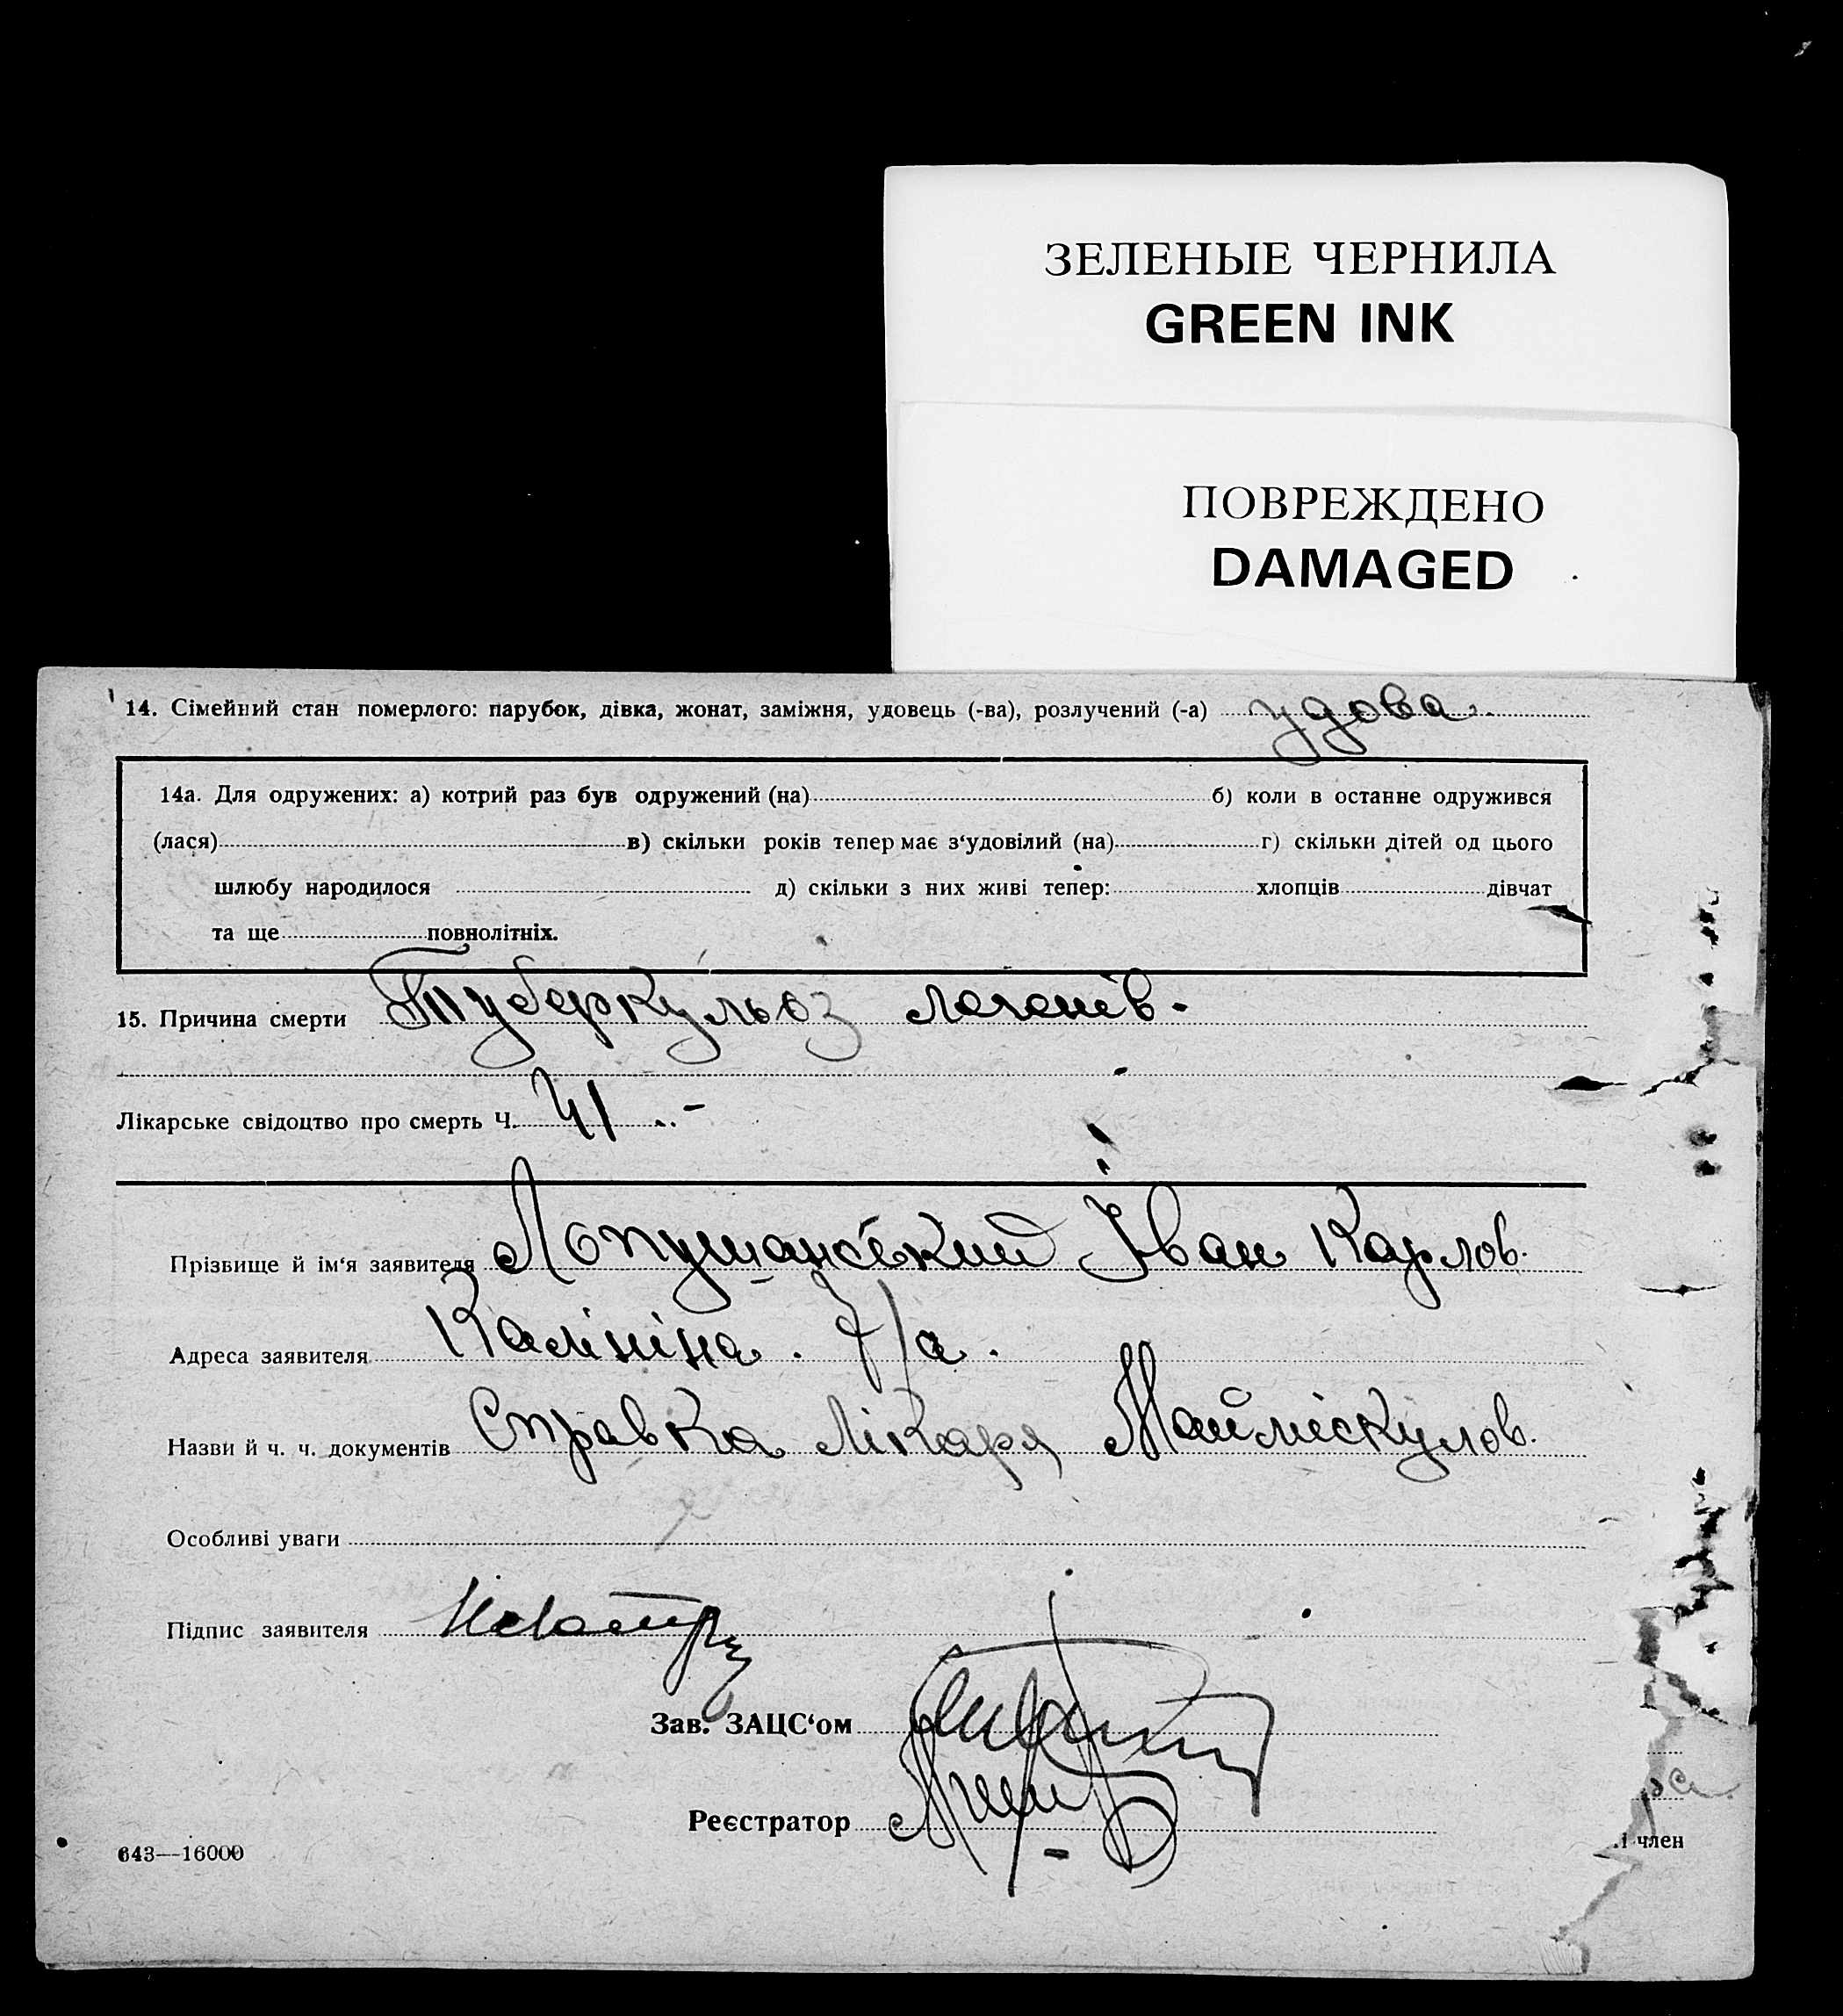 ЗЕЛЕНЫЕ ЧЕРНИЛА
GREEN INK
ПОВРЕЖДЕНО
DAMAGED
14. Сімейний стан померлого: парубок, дівка, жонат, заміжня, удовець (-ва), розлучений (-а) удова
14а. Для одружених: а) котрий раз був одружений (на) б) коли в останнє одружився
(лася) в) скільки років тепер має з‘удовілий (на) г) скільки дітей од цього
шлюбу народилося д) скільки з них живі тепер: хлопців дівчат
та ще повнолітніх.
15. Причина смерти Туберкульоз легенів.
Лікарське свідоцтво про смерть Ч. 41
Прізвище й ім‘я заявителя Лопушанський Іван Карлов.
Адреса заявителя Калініна. 7/а.
Назви й ч. ч. документів Справка лікаря Маймескулов.
Особливі уваги
Підпис заявителя
Зав. ЗАЦС‘ом
Реєстратор
643—16000
член